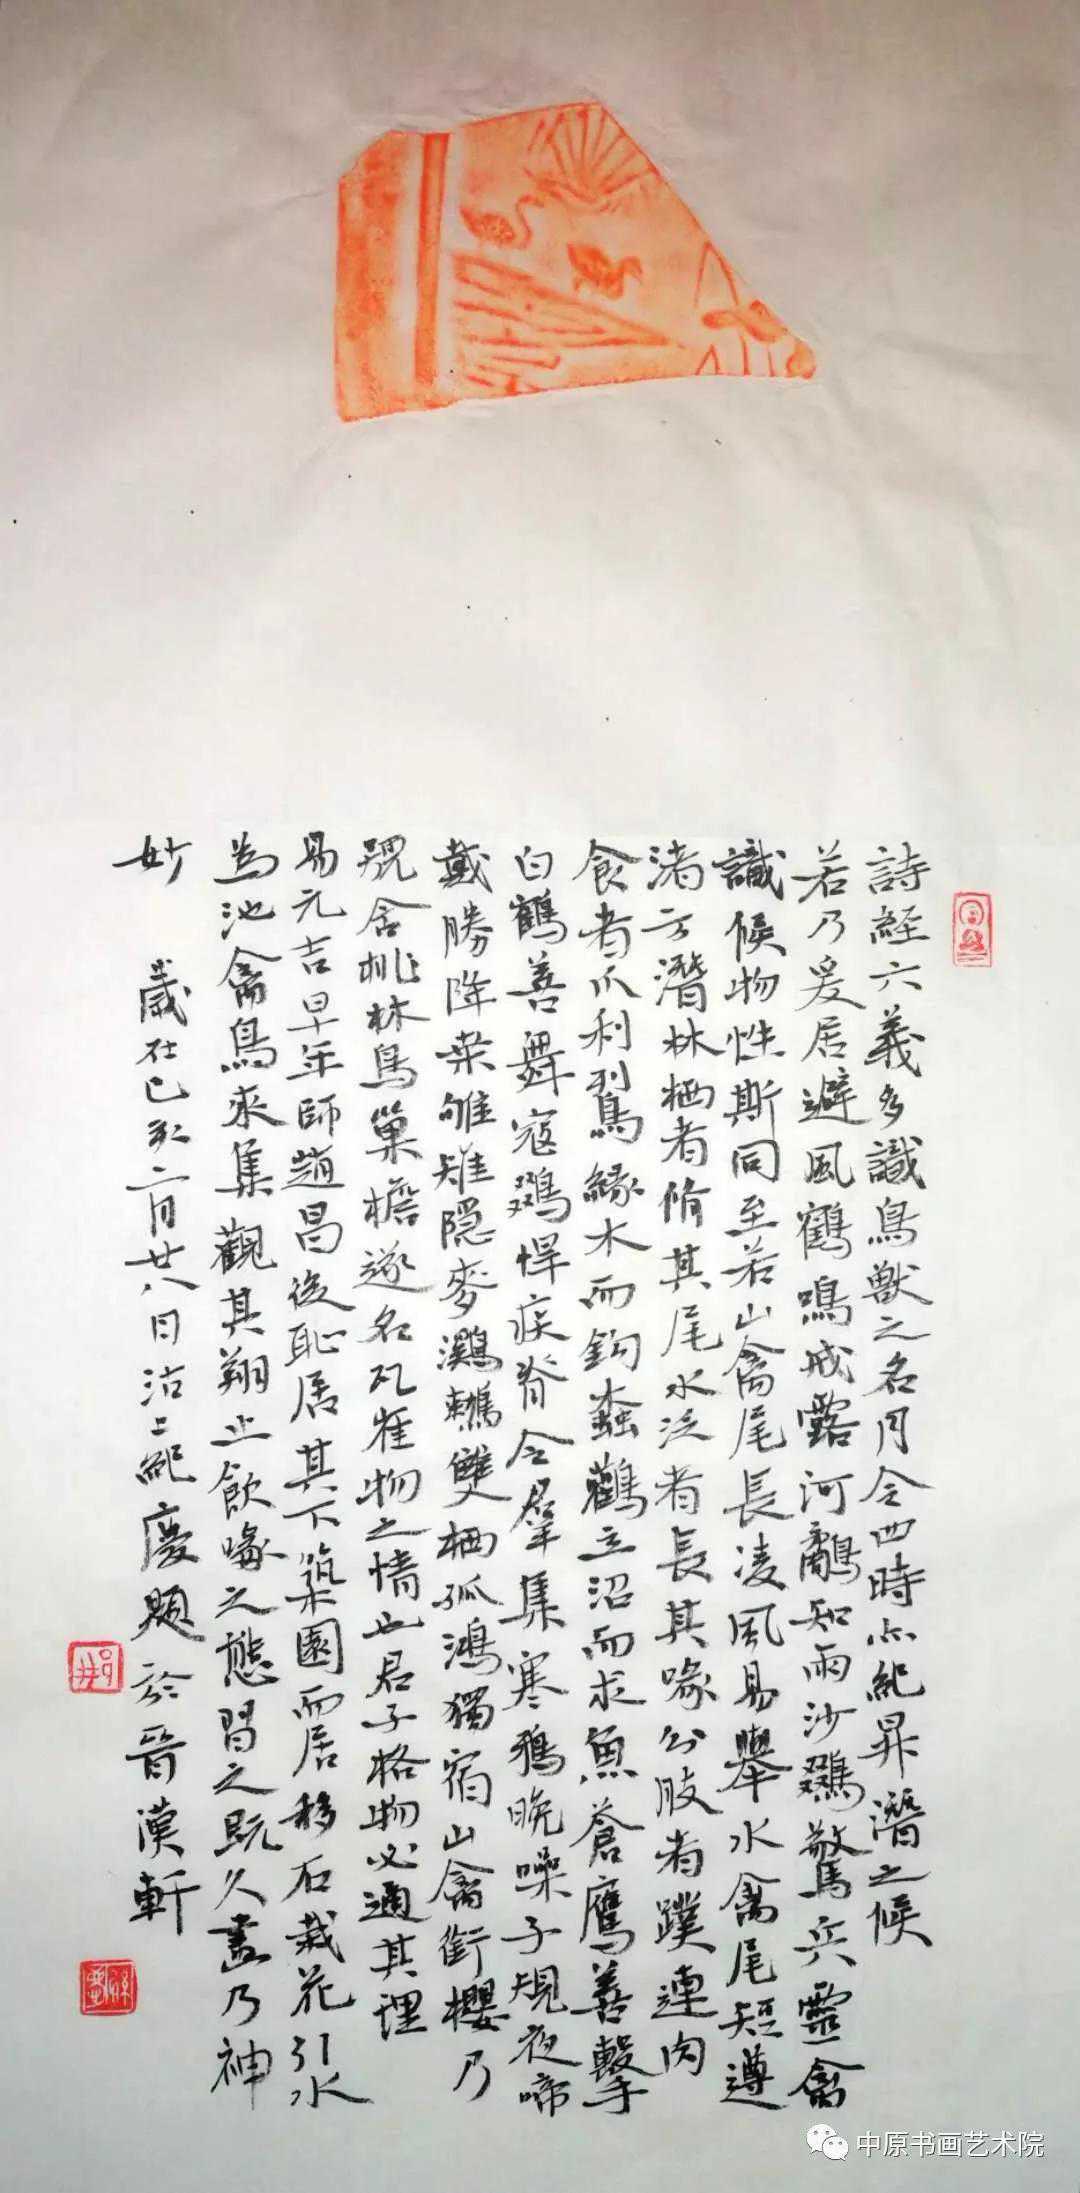 詩経六義多識鳥獸之名月令四時亦紀昇潛之候
若乃爰居避風鶴鳴戒露河鸐知雨沙鷄驚兵靈禽
識候物性斯同至若山禽尾長凌風易舉水禽尾短遵
渚方潛林栖者脩其尾水泛者長其喙分肢者蹼連肉
食者爪利鴷緣木而鈎蠹鸛立沼而求魚蒼鷹善擊
白鶴善舞寇鵕悍疾脊令羣集寒鴉晚噪子規夜啼
戴勝降桑雊雉隱麥鸂鶒雙栖孤鴻獨宿山禽銜櫻乃
號含桃林鳥巢檐遂名瓦雀物之情也君子格物必通其理
易元吉早年師趙昌後恥居其下築園而居移石栽花引水
為池禽鳥來集觀其翔止飲喙之態習之既久畫乃神
妙 歲在己亥二月廿八日沽上紀慶題於晉漢軒
中原书画艺术院